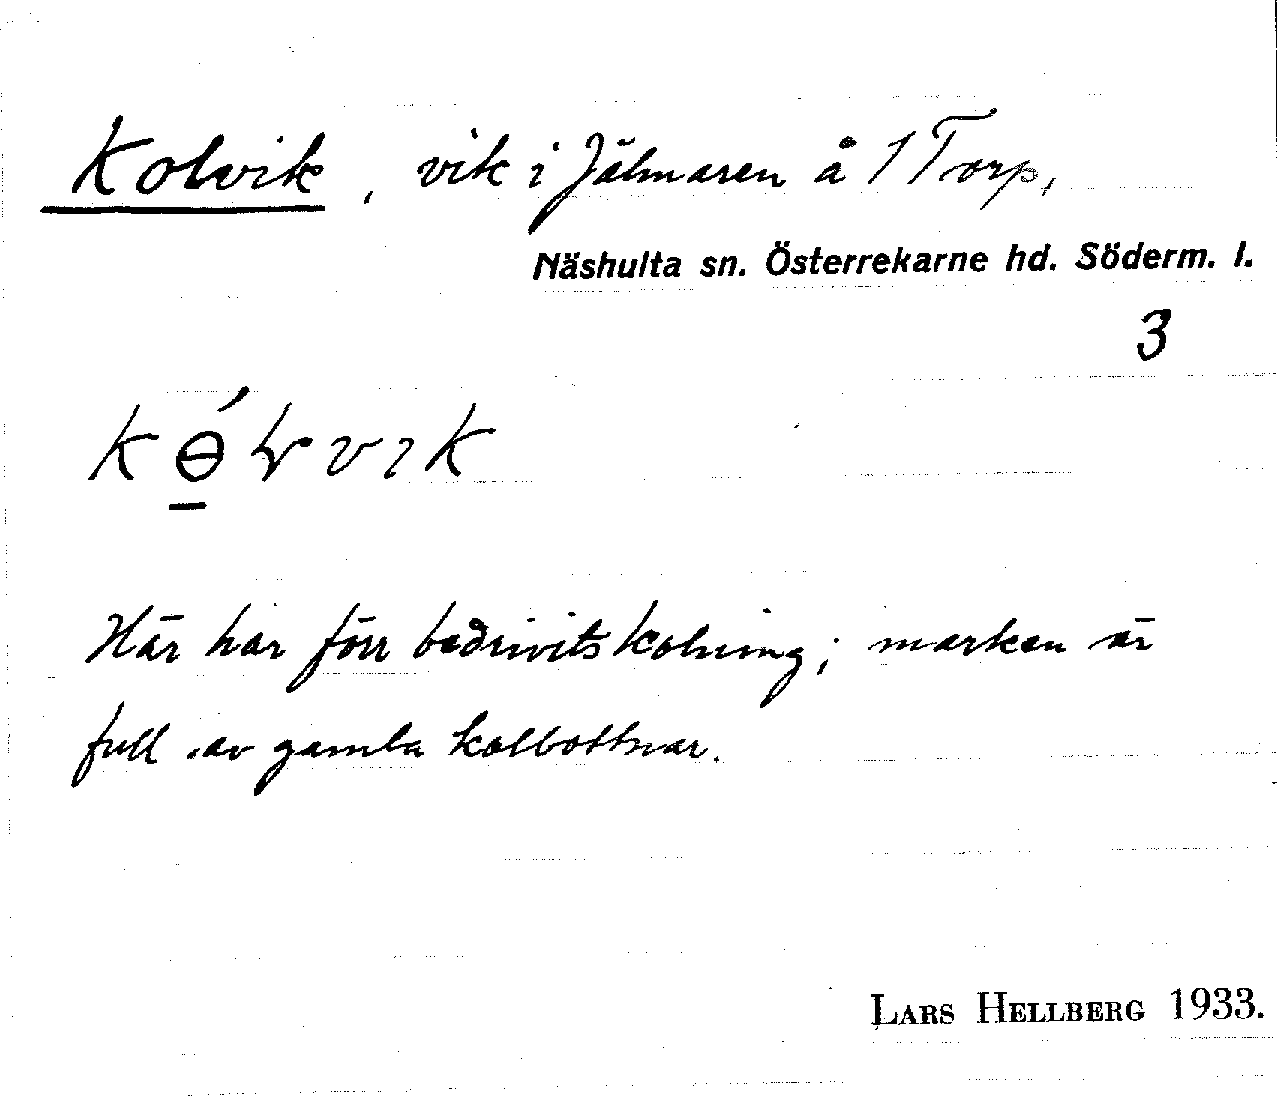 Kolvik, vik i Jälmaren å 1 Torp,
Näshulta sn. Österrekarne hd. Söderm. l.
3
Här har förr bedrivits kolning; marken är
full av gamla kolbottnar.
LARS HELLBERG 1933.